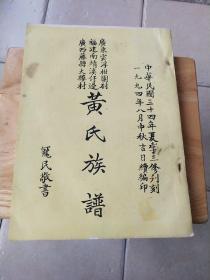 中華民國三十四年夏季三修刊刻
一九九四年八月中秋吉日續編印
廣東雲浮柑園
福建南靖溪仔邊
廣西藤縣大樟村
黃氏族譜
寵民敬書